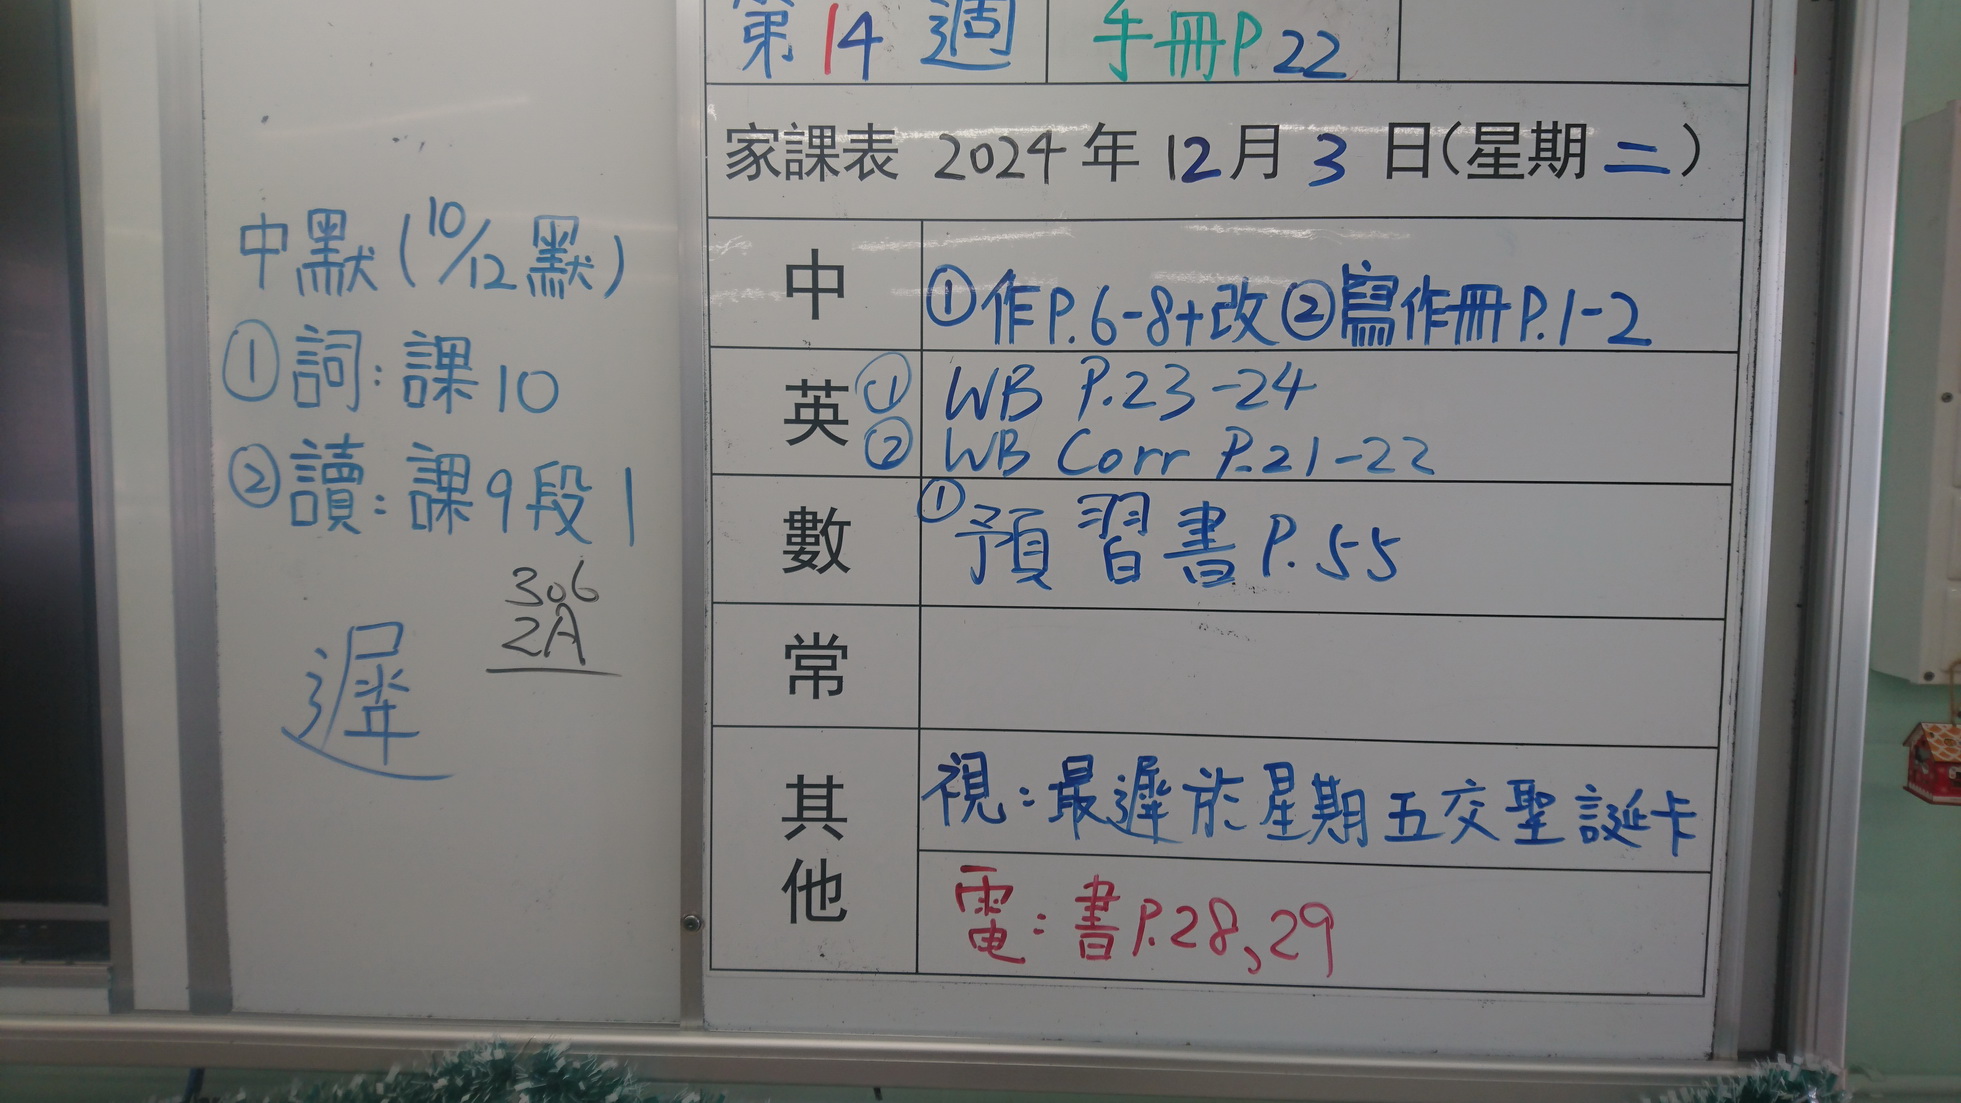 第14週 手冊P.22
家課表 2024年12月3日(星期二)
中 ①作P.6-8+改②寫作冊P.1-2
英 ① WB P.23-24
② WB Corr P.21-22
數 ①預習書P.55
常
其他 視:最遲於星期五交聖誕卡
電:書P.28、29
中默(10/12默)
①詞:課10
②讀:課9段1
306
2A
遲